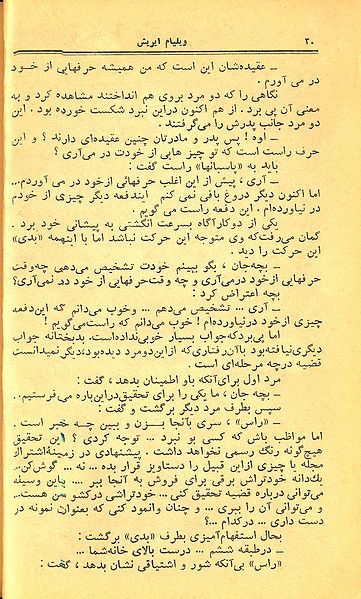 ۳۰ ویلیام ایریش
ـ عقیده‌شان این است که من همیشه حرفهایی از خود
در می آورم .
نگاهی را که دو مرد بروی هم انداختند مشاهده کرد و به
معنی آن پی برد . از هم اکنون در این نبرد شکست خورده بود . این
دو مرد جانب پدرش را میگرفتند .
ـ اوه ! پس پدر و مادرتان چنین عقیده‌ای دارند ؟ و این
حرف راست است که تو چیز هایی از خودت در می‌آری ؟
باید به «پاسبانها» راست گفت :
ـ آری ، پیش از این اغلب حرفهائی از خود در می آوردم...
اما اکنون دیگر دروغ بافی نمی کنم اینقدفعه دیگر چیزی از خودم
در نیاورده‌ام . این دفعه راست می گویم .
یکی از دو کارآگاه بسرعت انگشتی به پیشانی خود برد .
گمان می‌رفت که وی متوجه این حرکت نباشد اما با اینهمه «بدی»
این حرکت را دید .
ـ بچه‌جان ، بگو ببینم خودت تشخیص می‌دهی چه‌وقت
حرفهایی از خود در می‌آری و چه وقت حرفهایی از خود در نمی‌آری؟
بچه اعتراض کرد :
ـ آری ... تشخیص می‌دهم ... وخوب می‌دانم که این‌دفعه
چیزی از خود در نیاورده‌ام ! خوب می‌دانم که راست می‌گویم !
اما پی‌برد که جواب بسیار خوبی‌نداده‌است. بدبختانه جواب
دیگری نیافته بود با آن رفتاری که از این دو مرد دیده بود، دیگر نمیدانست
قضیه در چه مرحله‌ای است .
مرد اول برای آنکه باو اطمینان بدهد ، گفت :
ـ بچه جان ، ما یکی را برای تحقیق در این‌باره می‌فرستیم .
سپس بطرف مرد دیگر برگشت و گفت :
ـ «راس» ، سری بآنجا بزن و ببین چه خبر است .
اما مواظب باش که کسی بو نبرد ... توجه کردی ؟ این تحقیق
هیچ‌گونه رنگ رسمی نخواهد داشت . پیشنهادی در زمینهٔ اشتراک
مجله یا چیزی از این قبیل را دستاویز قرار بده ... نه ... گوش‌کن...
یک‌دانه خودتراش برقی برای فروش به آنجا ببر .... باین وسیله
می‌توانی درباره قضیه تحقیق کنی ... خودتراشی در کشو من هست...
و می‌توانی آن را ببری ... و چنان وانمود کنی که بعنوان نمونه در
دست داری ... در کدام ...؟
بحال استفهام‌آمیزی بطرف «بدی» برگشت :
ـ در طبقه ششم ... درست بالای خانه‌شما ...
«راس» بی‌آنکه شور و اشتیاقی نشان بدهد ، گفت :